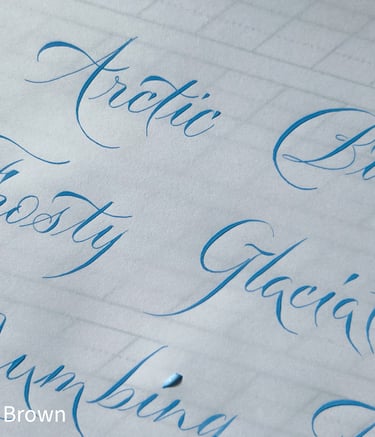 Arctic
Frosty Glacial
Numbing
Brown